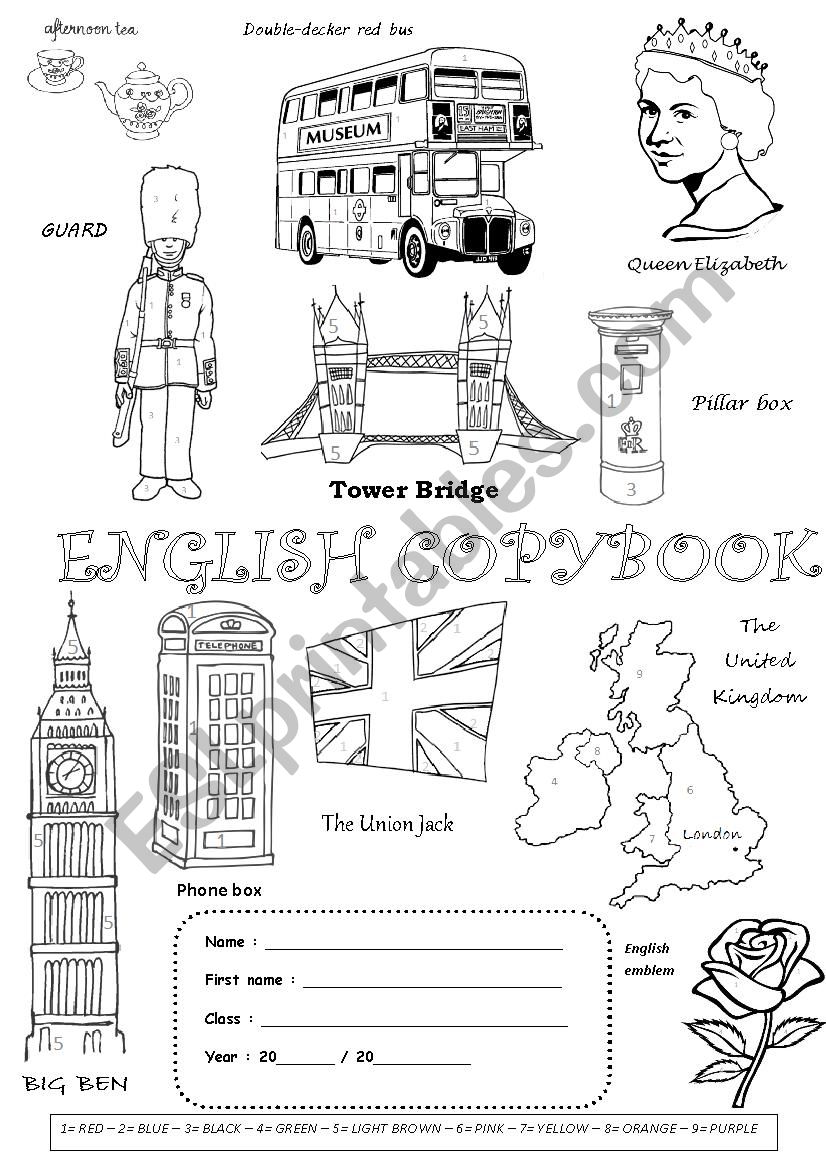 afternoon tea
Double-decker red bus
1
1
MUSEUM
15
EAST HAM
1
1
JJD
GUARD
3
1
1
1
3
3
3
3
Queen Elizabeth
5
5
5
5
Tower Bridge
1
EIIR
3
Pillar box
ENGLISH COPYBOOK
5
5
5
5
BIG BEN
1
TELEPHONE
1
1
Phone box
2
1
2
1
2
1
1
2
1
2
1
The Union Jack
The
United
Kingdom
9
8
4
6
7
London
Name :
First name :
Class :
Year : 20 / 20
English
emblem
1
1= RED – 2= BLUE – 3= BLACK – 4= GREEN – 5= LIGHT BROWN – 6= PINK – 7= YELLOW – 8= ORANGE – 9= PURPLE
ESLprintables.com